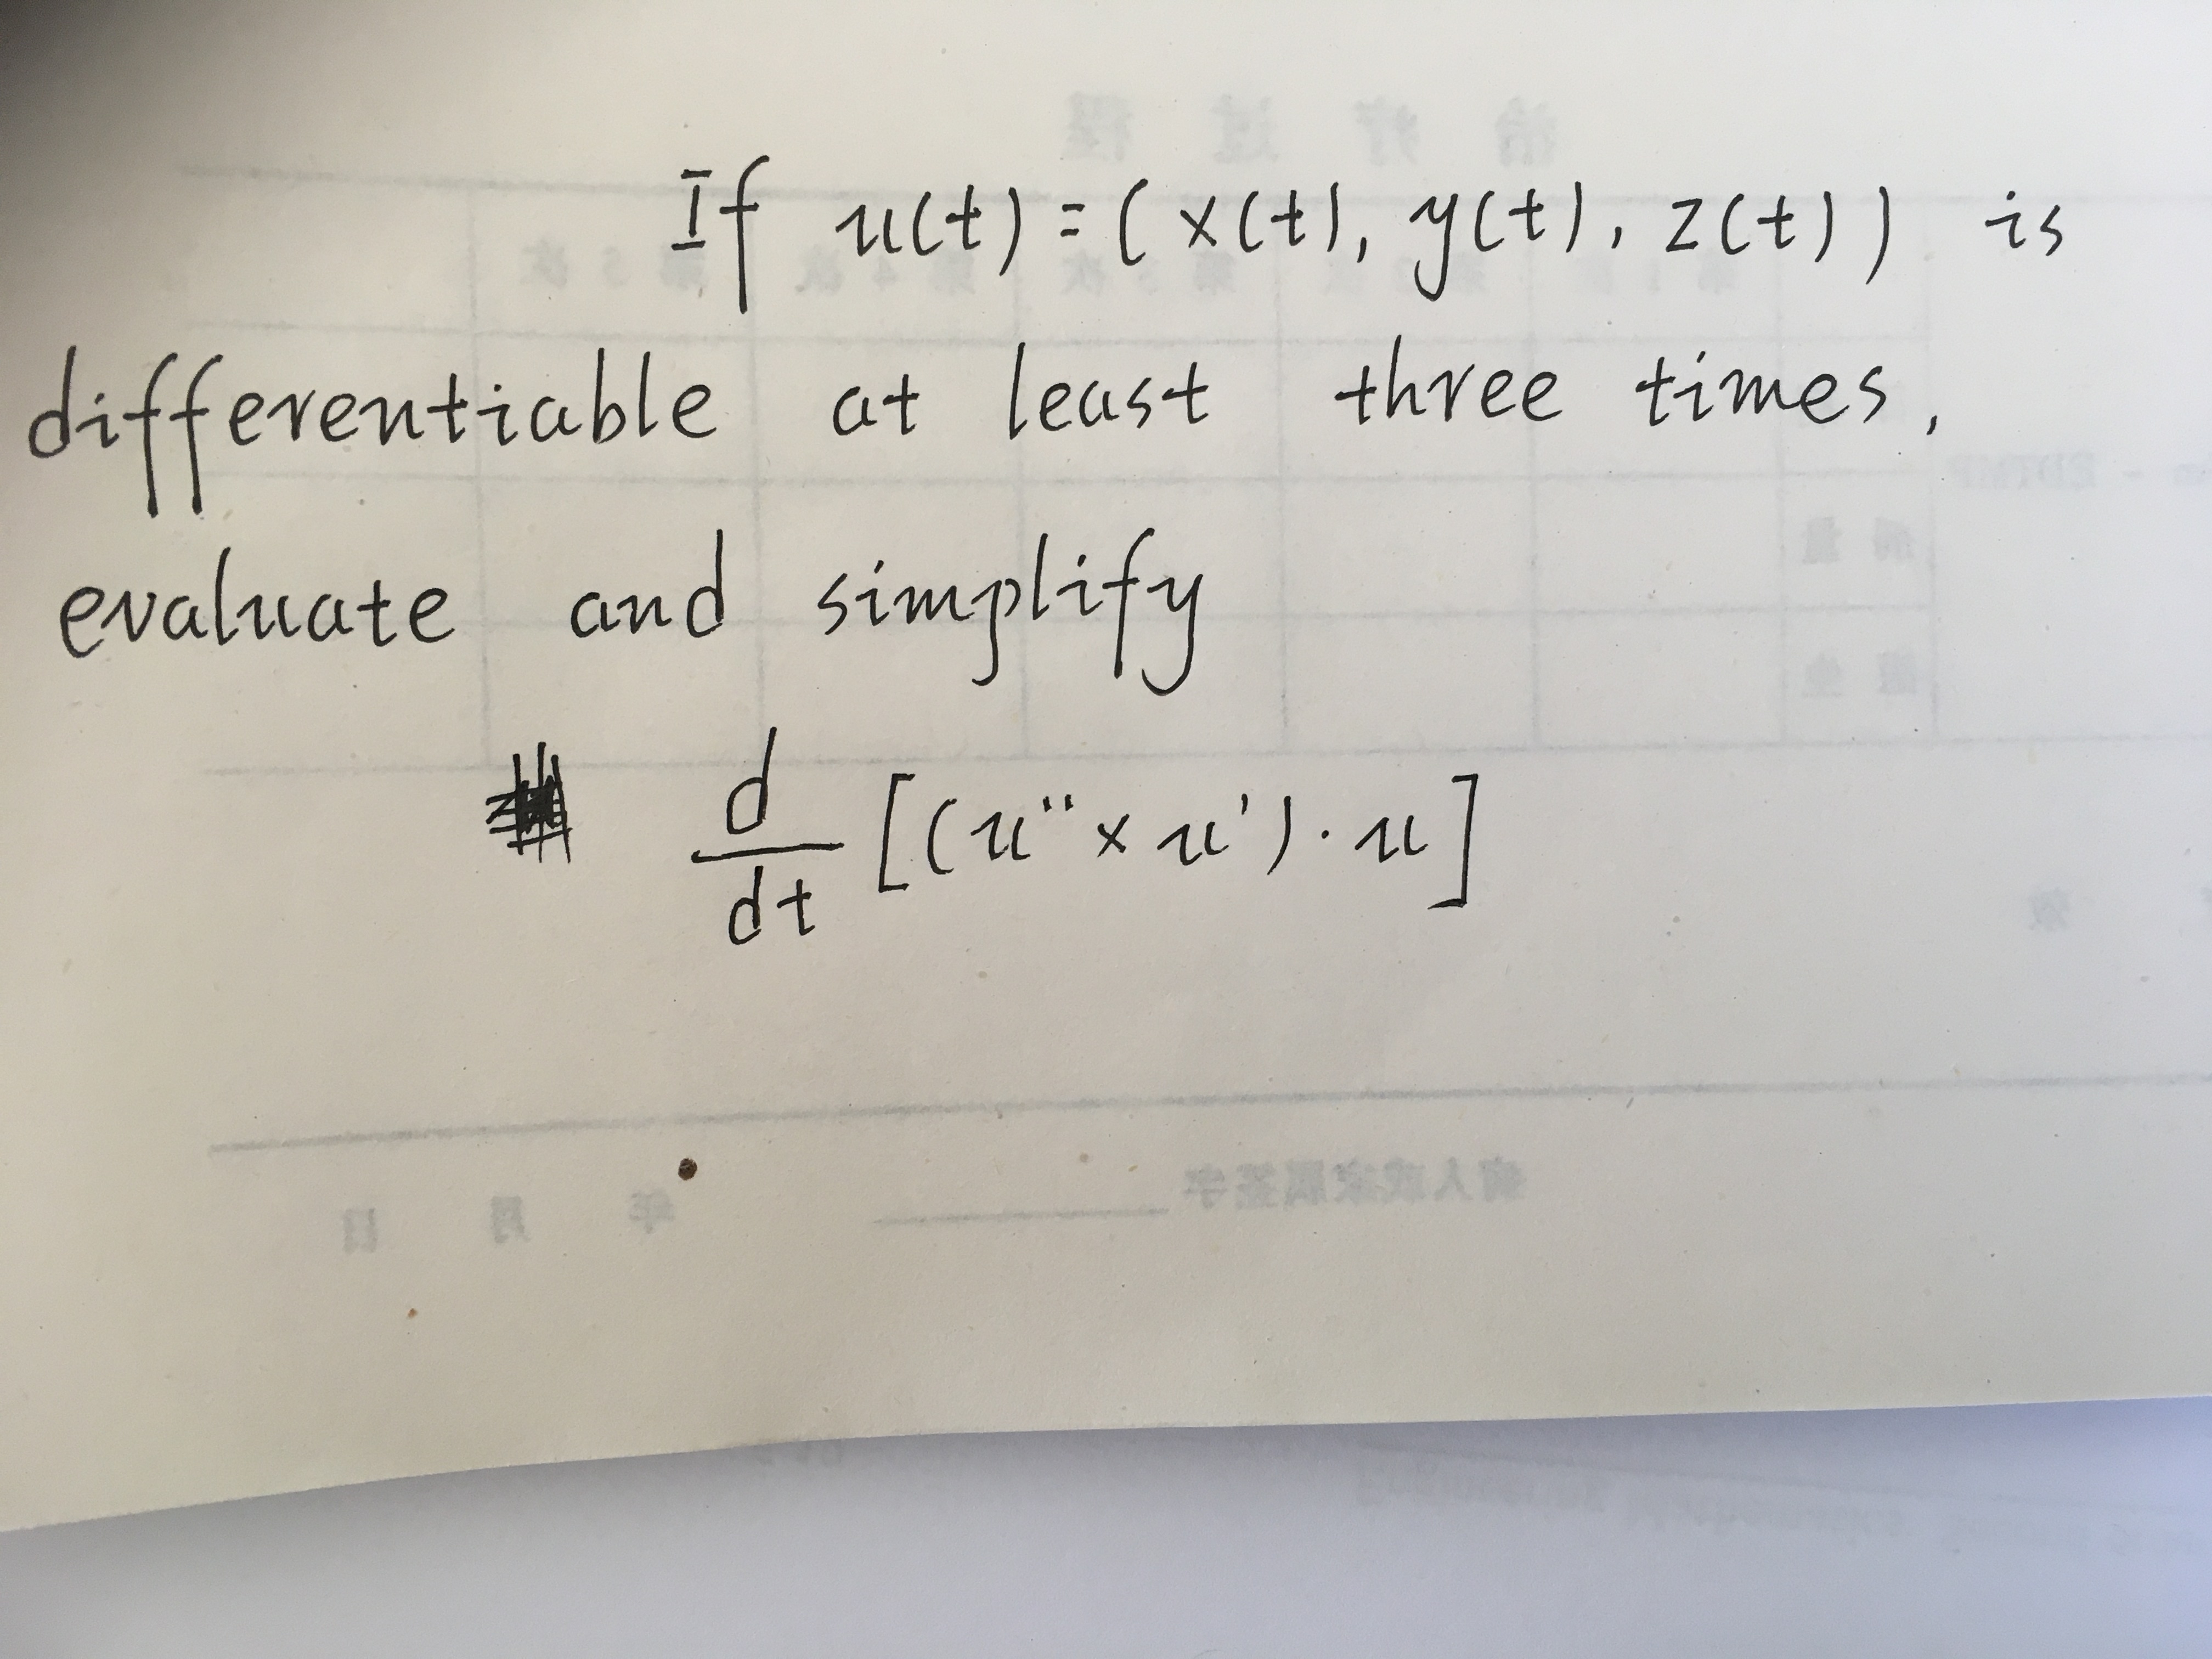 治疗过程
If u(t) = (x(t), y(t), z(t)) is
differentiable at least three times,
evaluate and simplify
d/dt [(u'' × u') · u]
病人或家属签字
年 月 日